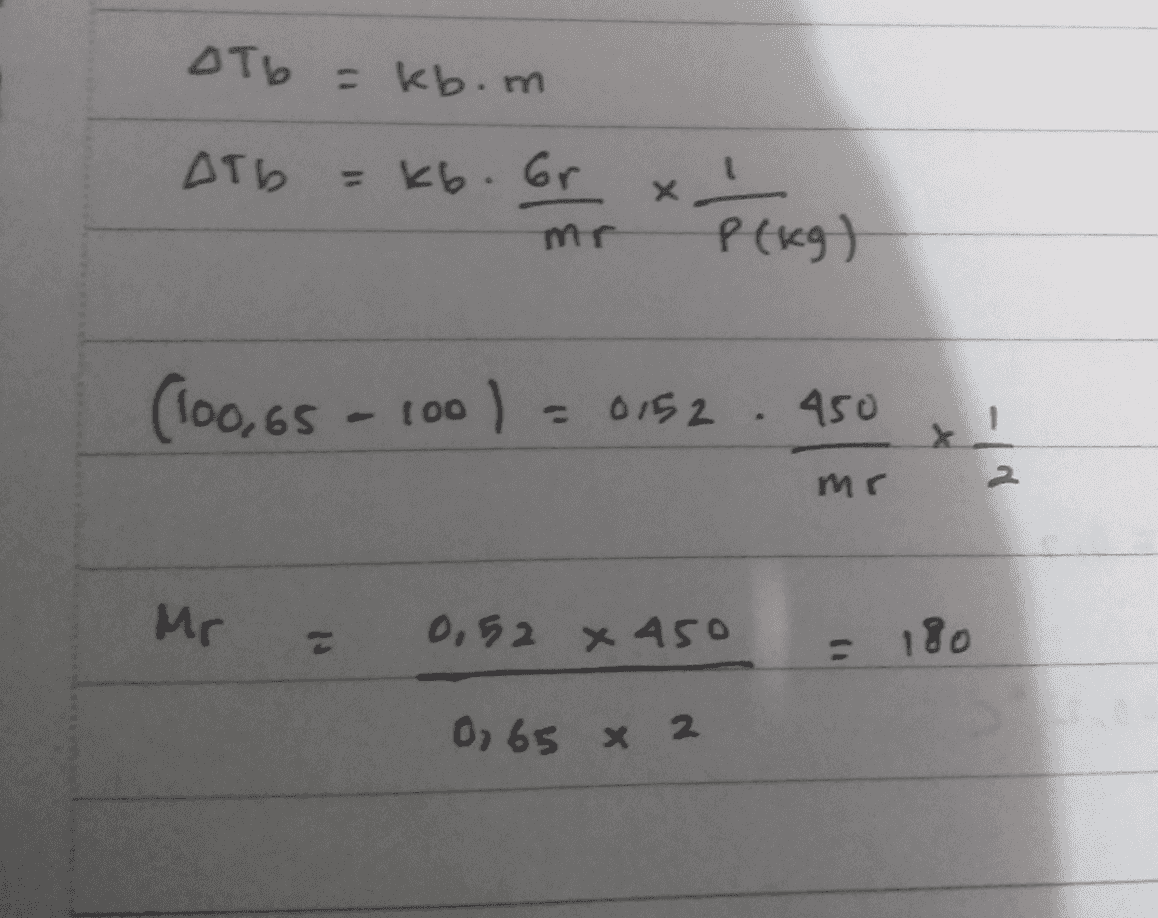 ΔTb = kb . m
ΔTb = kb . Gr/mr x 1/P(kg)
(100,65 - 100) = 0,52 . 450/mr x 1/2
Mr = 0,52 x 450 / 0,65 x 2 = 180